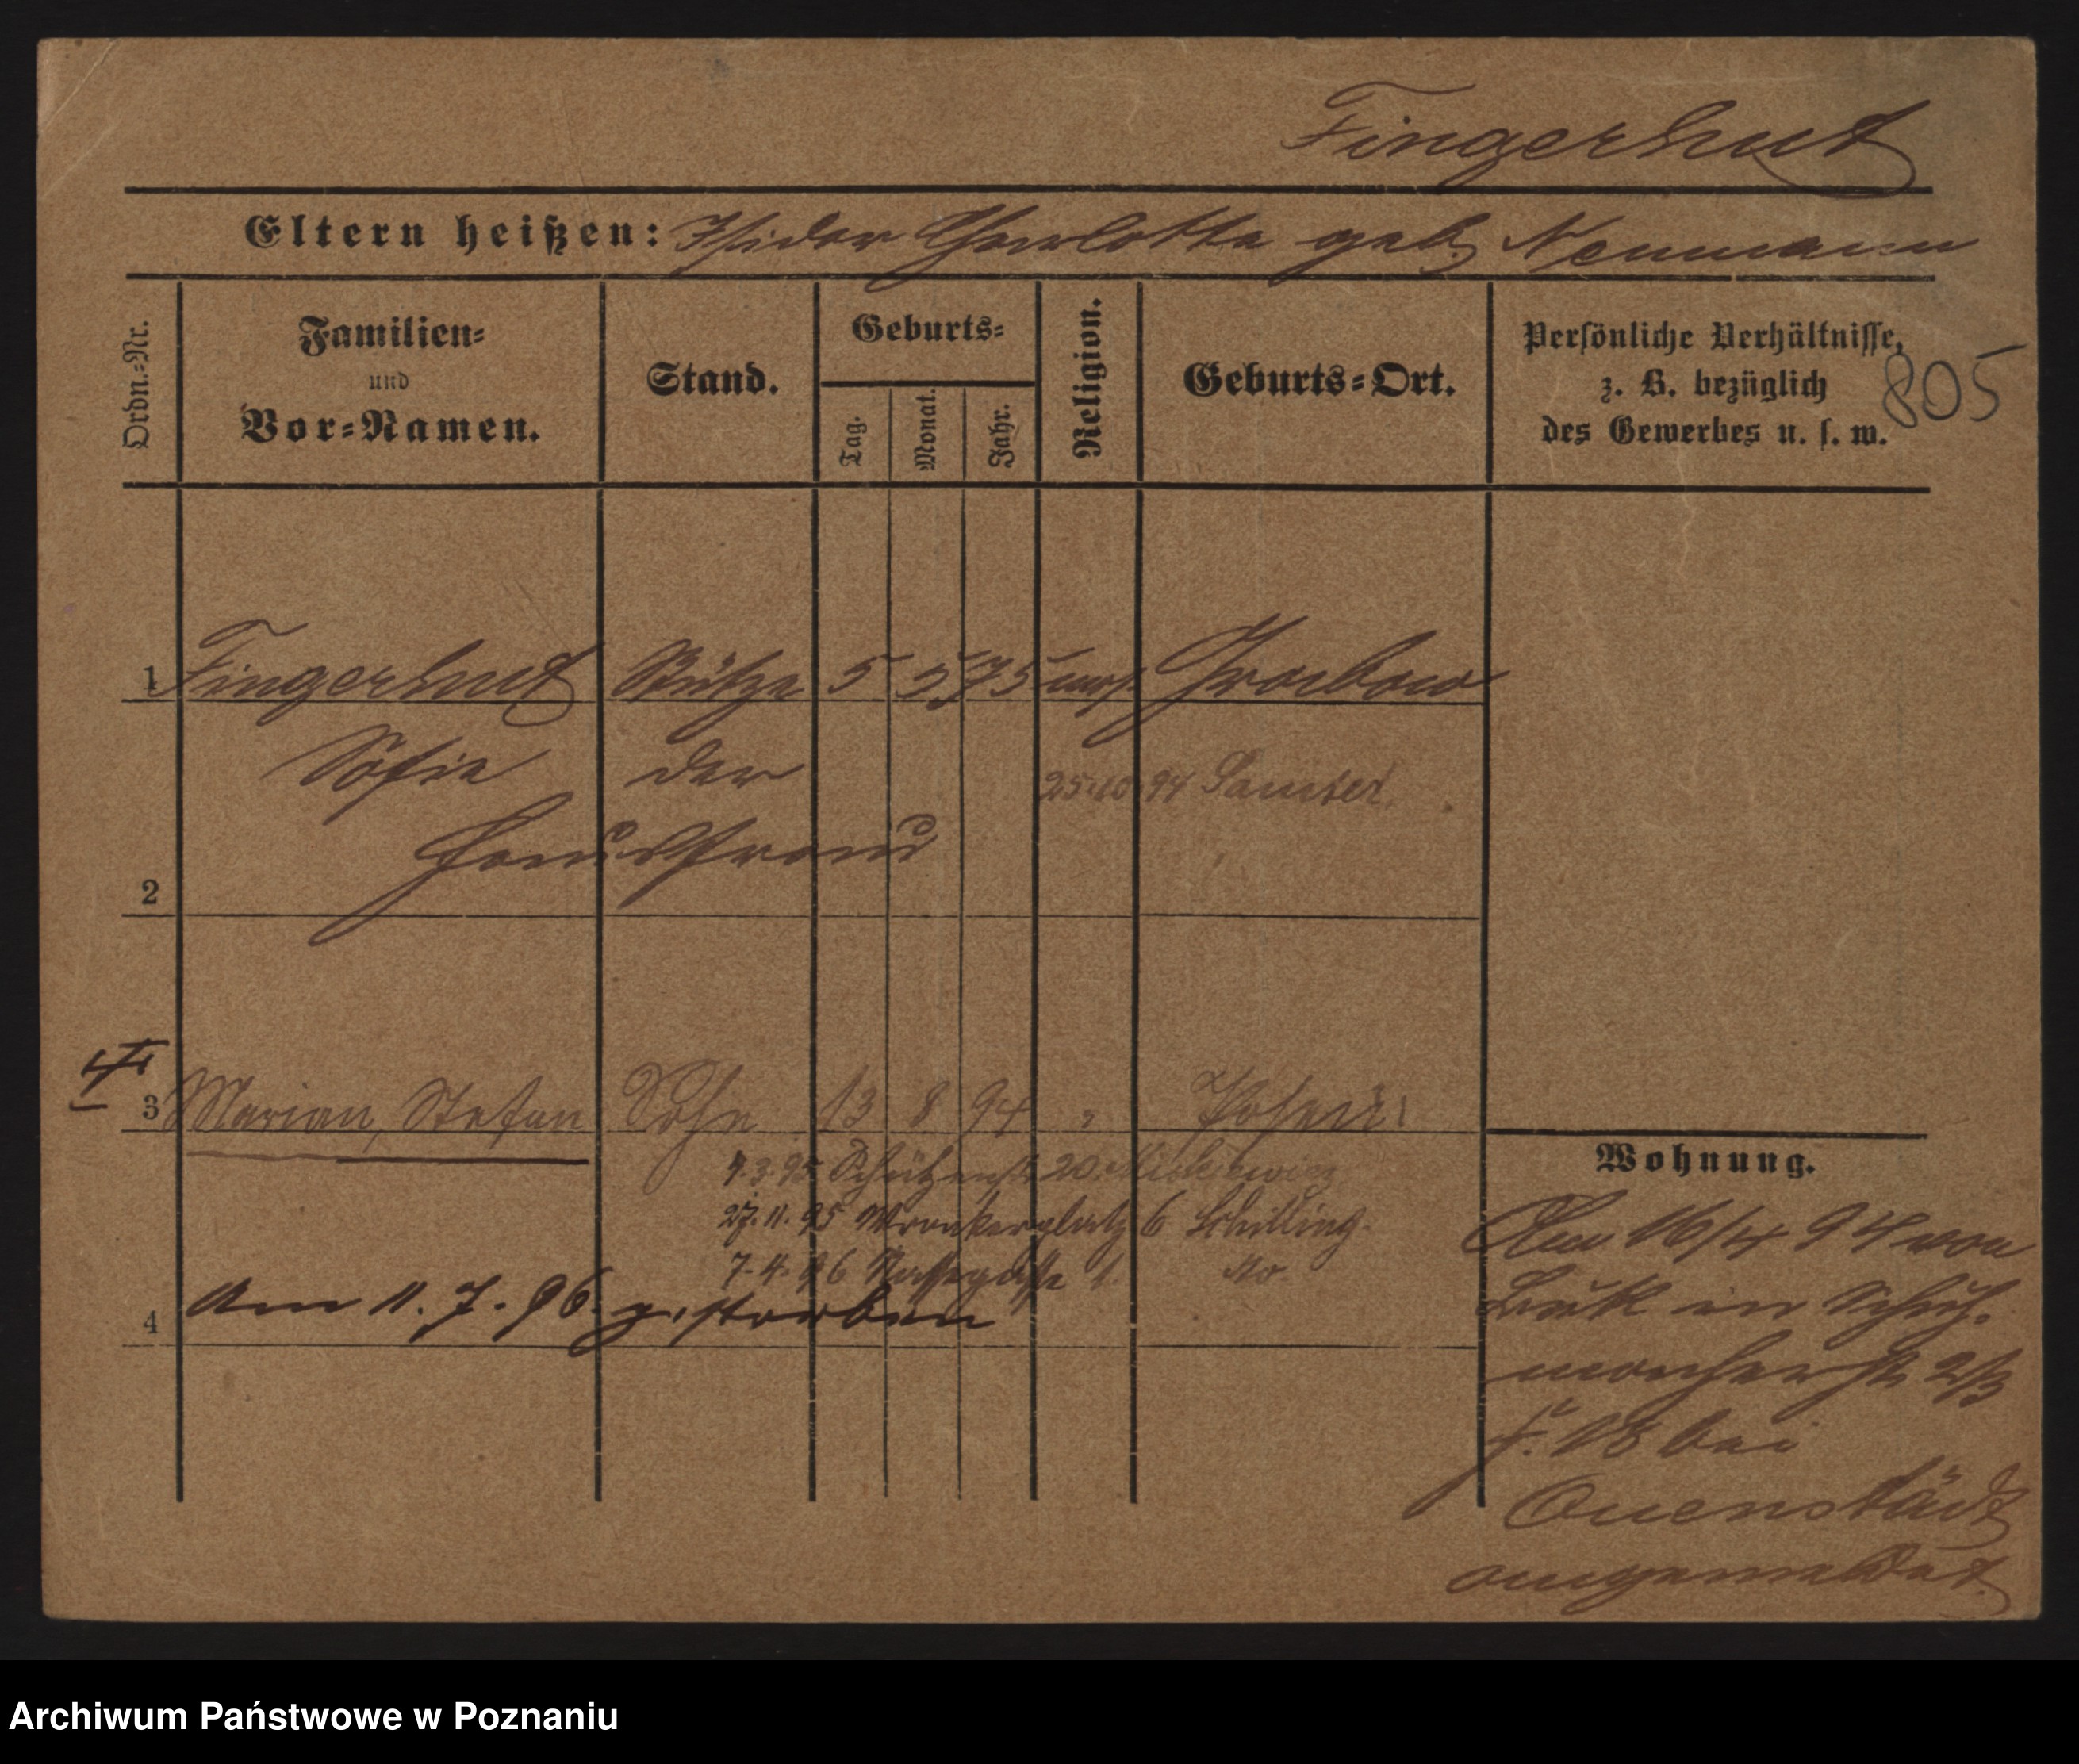 Fingerhut
Eltern heißen: Isidor Charlotte geb. Neumann
Ordn.-Nr.
Familien-
und
Vor-Namen.
Stand.
Geburts-
Tag.
Monat.
Jahr.
Religion.
Geburts-Ort.
Persönliche Verhältnisse,
z. B. bezüglich
des Gewerbes u. s. w.
805
1 Fingerhut Stütze 5 5 75 mos. Grabow
Sofie der
25.10.94 Samter
Hausfrau
2
3 Marian, Stefan Sohn 13 8 94 " Posen
Wohnung.
4.3.95 Schützenstr 20
27.11.95 Wronkerplatz 6 Schilling.
7.4.96
4 Am 11.7.96 gestorben
Am 16/4 94 von
Buk in Schuh-
macherstr 2/3
bei
Quenstädt
angemeldet.
Archiwum Państwowe w Poznaniu